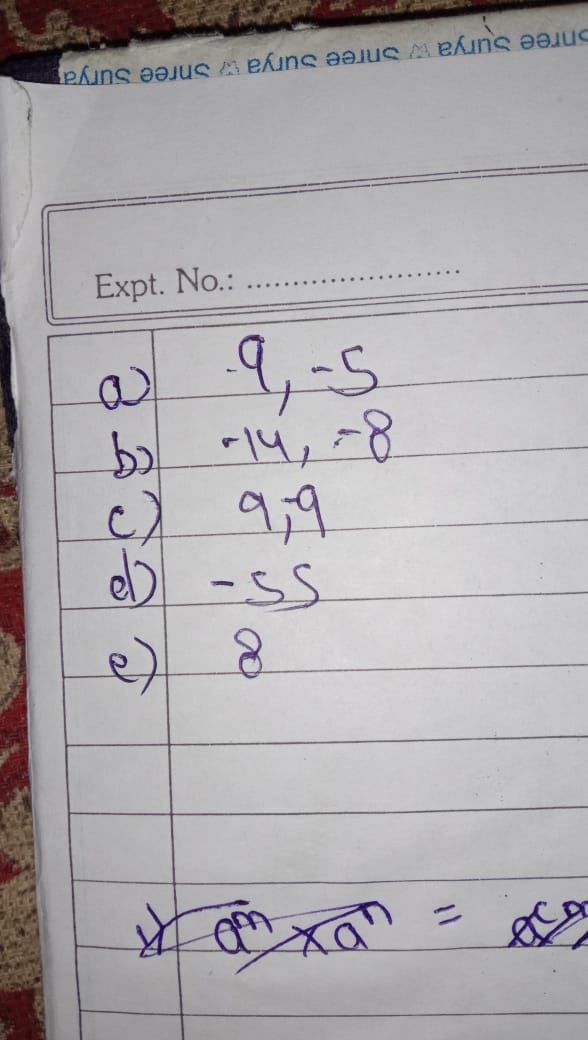 Shree Surya Shree Surya Shree Surya
Expt. No.: ........................
a) -9, -5
b) -14, -8
c) 9, -9
d) -55
e) 8
a^m x a^n =